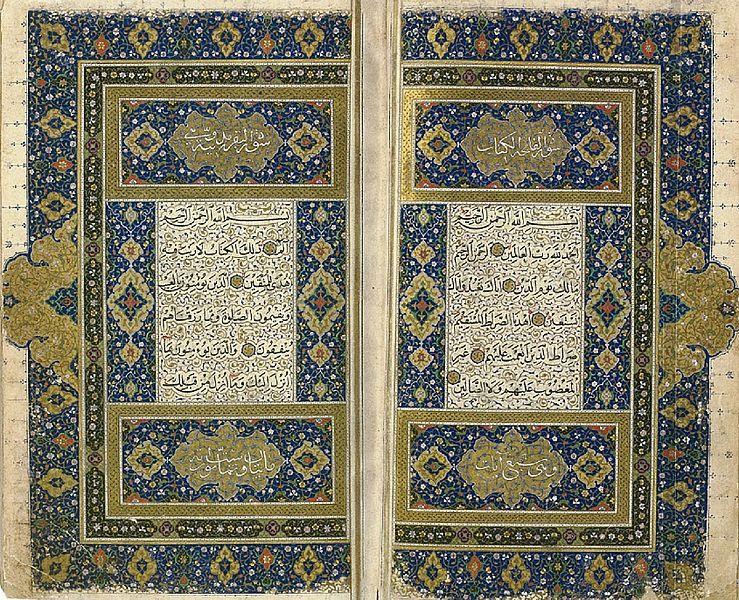 سورة فاتحة الكتاب
بسم الله الرحمن الرحيم
الحمد لله رب العالمين الرحمن الرحيم
مالك يوم الدين اياك نعبد واياك
نستعين اهدنا الصراط المستقيم
صراط الذين انعمت عليهم غير
المغضوب عليهم ولا الضالين
وهي سبع آيات
سورة البقرة مدنية وهي
بسم الله الرحمن الرحيم
الم ذلك الكتاب لا ريب فيه
هدى للمتقين الذين يؤمنون بالغيب
ويقيمون الصلوة ومما رزقناهم
ينفقون والذين يؤمنون بما
انزل اليك وما انزل من قبلك
مائتان